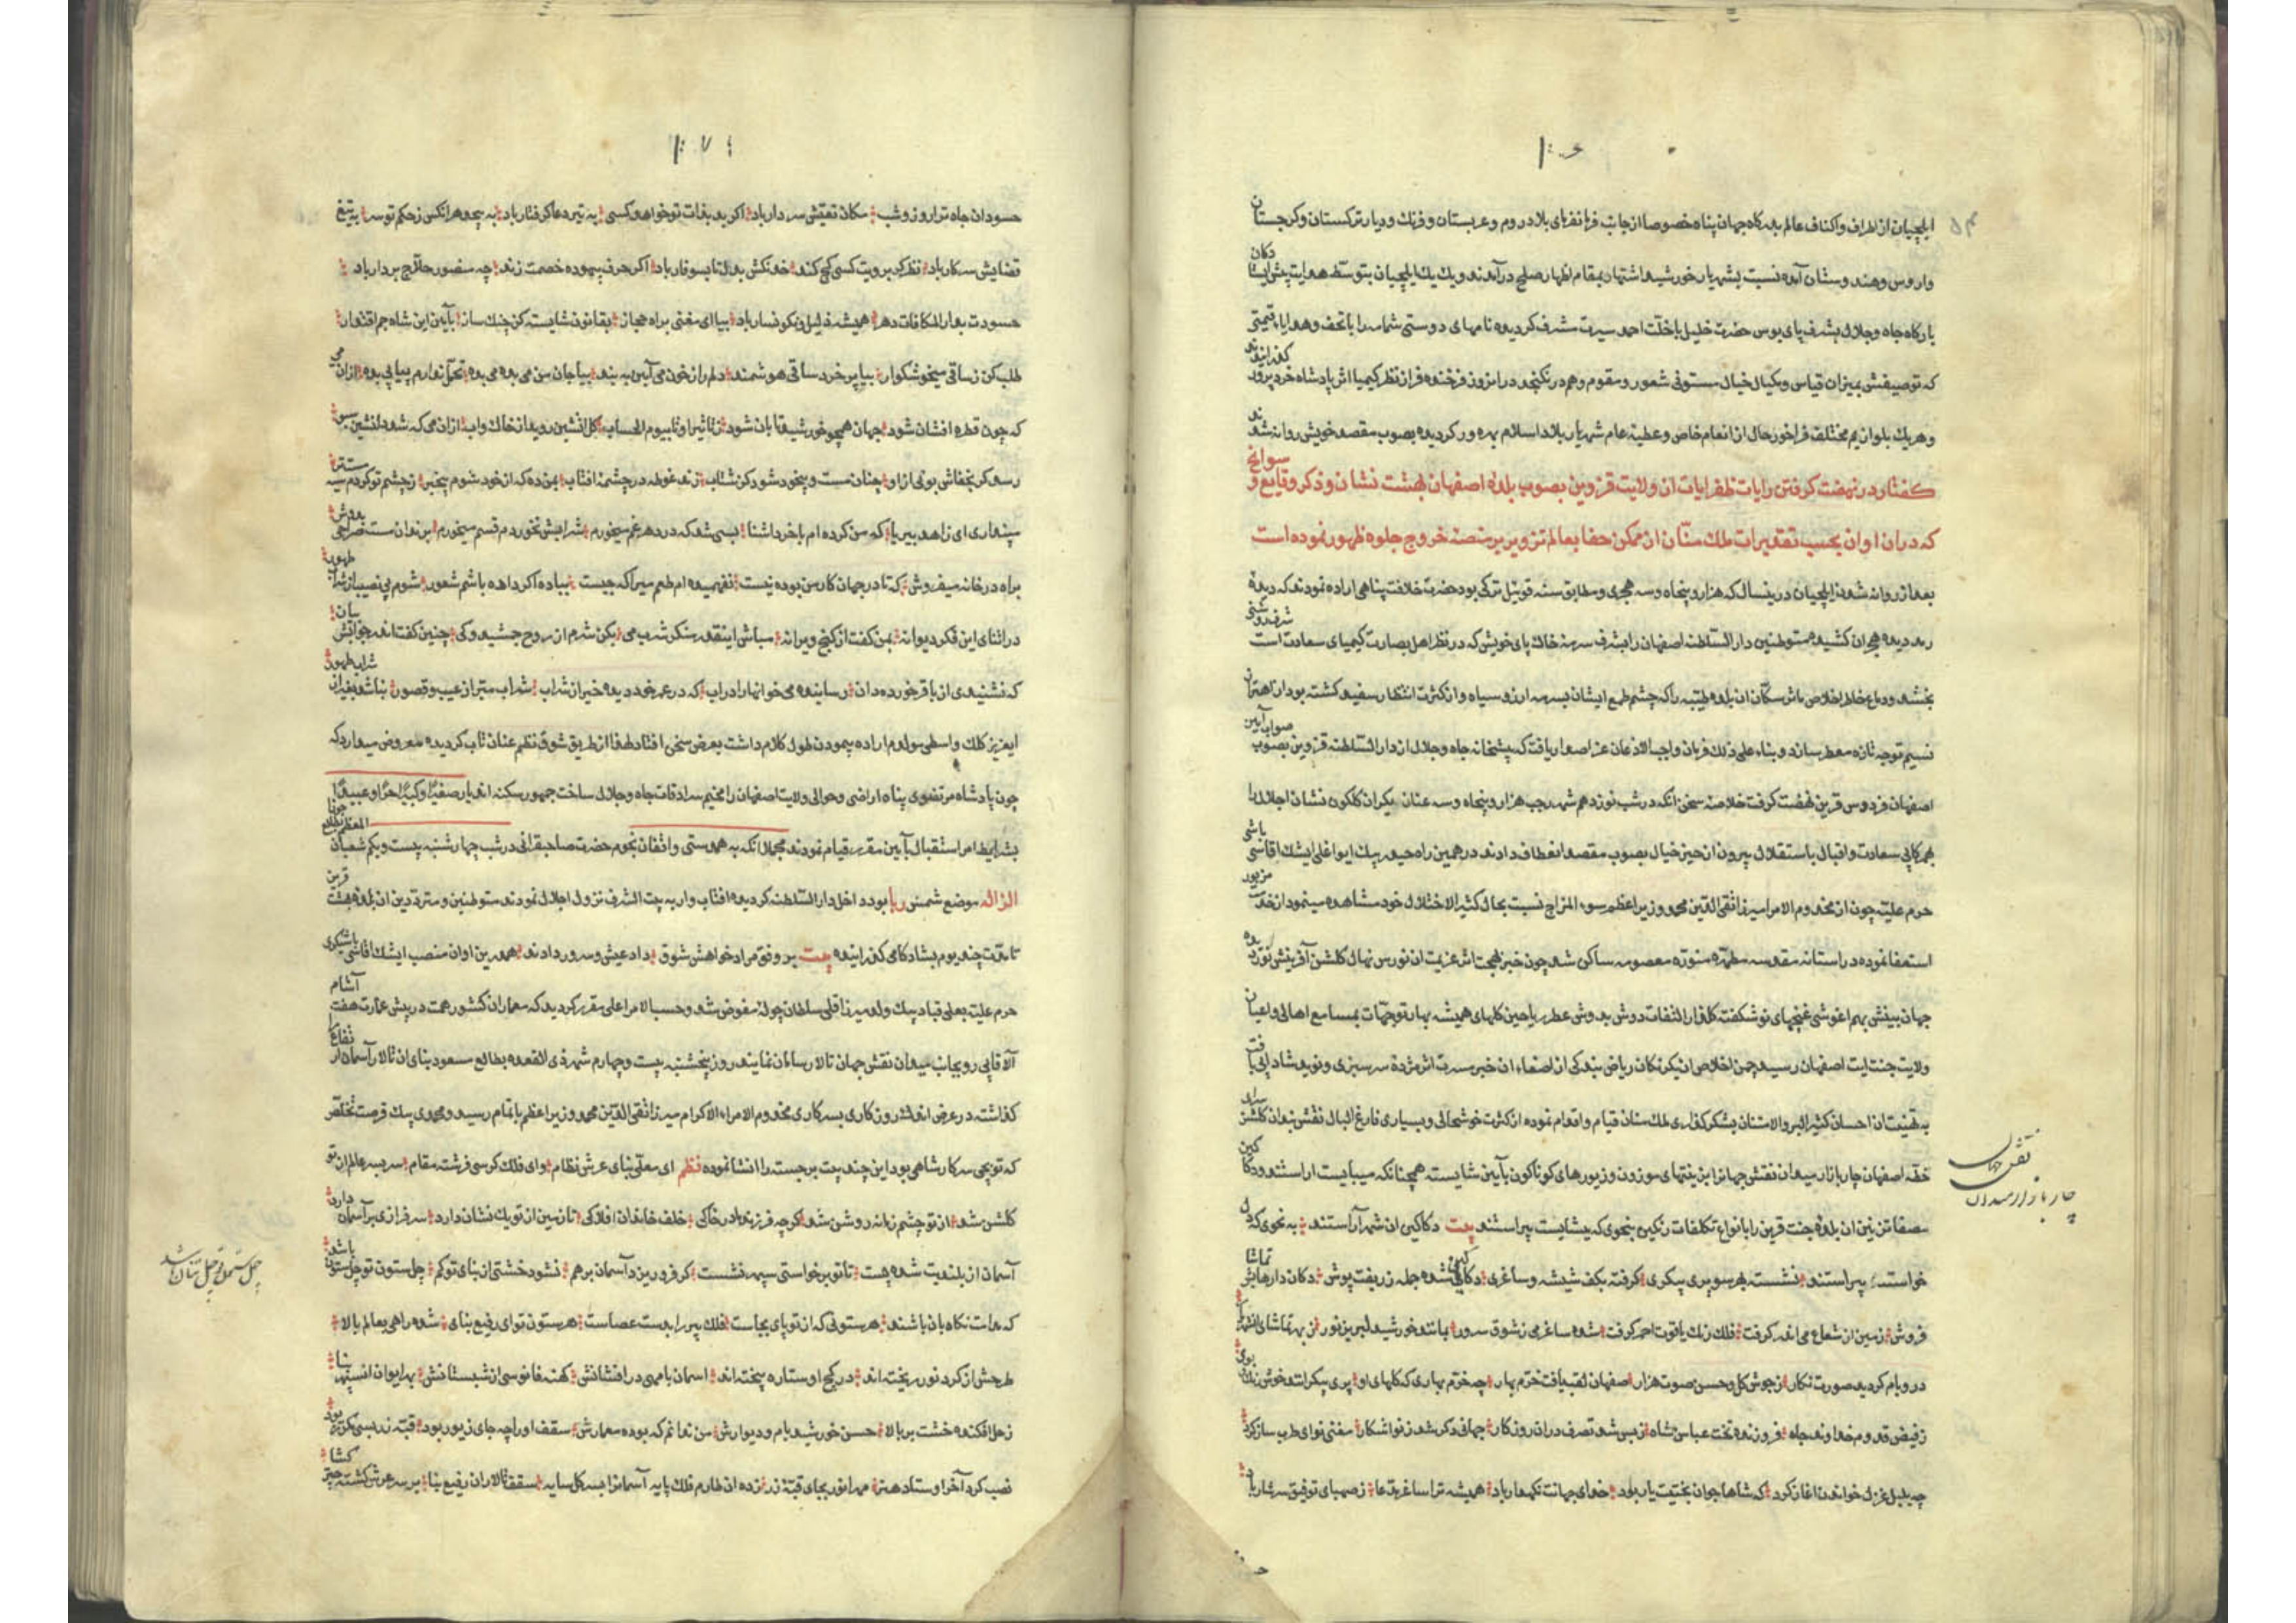 ایلچیان از اطراف و اکناف عالم بدرکاه جهان پناه خصوصا از جانب فرمانفرمای بلاد روم و عربستان و فرنك و دیار ترکستان و کرجستان
و اروس و هندوستان آمده نسبت بشهریار خورشید اشتهار بمقام اظهار صلح در آمدند و یك یك ایلچیان بتوسط
بارکاه جاه و جلال بشرف پای بوس حضرت خلیل با خلت احمد سیرت مشرف کردیده نامهای دوستی شمامه را با تحف و هدایا قیمتی
که توصیفش بمیزان قیاس و مکیال خیال مستوفی شعور و مقوم وهم در نکنجد درانروز فرخنده فر از نظر کیمیا اثر پادشاه خرد پرور کذرانیدند
و هریك بلوازم مختلف فراخور حال از انعام خاص و عطیه عام شهریار بلاد اسلام بهره ور کردیده بصوب مقصد خویش روانه شدند
کفتار در نهضت کرفتن رایات ظفر ایات از ولایت قزوین بصوب بلده اصفهان بهشت نشان و ذکر وقایع و سوانح
که دران اوان بحسب تقدیرات ملك منان از ممکن خفا بعالم تزویر بر منصه خروج جلوه ظهور نموده است
بعد از روانه شدن ایلچیان درینسال که هزار و پنجاه و سه هجری و مطابق سنه قوی ئیل ترکی بود حضرت خلافت پناهی اراده نمودند که دیده
رمد دیده هجران کشیده متوطنین دار السلطنه اصفهان را بشرف سرمه خاك پای خویش که در نظر اهل بصارت کیمیای سعادت است
بخشد و دماغ خاطر اخلاص مآثر سکّان ان بلده طیبه را که چشم طمع ایشان بسرمه ارزو سیاه و از کثرت انتظار سفید کشته بود از اهتزاز
نسیم توجه تازه معطر سازد و بناء علی ذلك فرمان واجب الاذعان عز اصدار یافت که پیشخانه جاه و جلال از دار السلطنه قزوین بصوب صواب آیین
اصفهان فردوس قرین نهضت کرفت خلاصه سخن انکه در شب نوزدهم شهر رجب هزار و پنجاه و سه عنان یکران کلکون نشان اجلال را
همرکابی سعادت و اقبال باستقلال بیرون از حیز خیال بصوب مقصد انعطاف دادند در همین راه حیدر بیك ایواغلی ایشك اقاسی باشی
حرم علیه چون از مخدوم الامرا میرزا تقی الدین محمد وزیر اعظم سوء المزاج نسبت بحال کثیر الاختلال خود مشاهده مینمود از خدمت مزبور
استعفا نموده در استانه مقدسه مطهره منوره معصومه ساکن شد چون خبر بهجت اثر عزیمت ان نورس نهال کلشن آفرینش
جهان بینش بهم اغوشی غنچهای نو شکفته کلزار التفات دوش بدوش عطر ریاحین کلهای همیشه بهار توجهات بمسامع اهالی و اعیان
ولایت جنت ایت اصفهان رسید چمن اخلاص
به تهنیت ان احسان کثیر البر والامتنان بشکر کذاری ملك منان قیام و اقدام نموده از کثرت خوشحالی و بسیاری فارغ البالی
خطه اصفهان چار بازار میدان نقش جهانرا بزینتهای موزون و زیورهای کوناکون بآیین شایسته همچنانکه میبایست اراستند
ان بلده جنت قرین را بانواع تکلفات رنکین بنحوی که بشایست پیراستند بیت دکاکین ان شهر آراستند به نحوی که دل
خواست پیراستند نشسته بهر سو پری پیکری کرفته بکف شیشه و ساغری دکاکین شده جمله زربفت پوش دکان دارهایش تماشا
فروش زمین از شعاع می اندر کرفت فلك رنك یاقوت احمر کرفت شده ساغر می ز شوق سرور بمانند خورشید لبریز نور ز بهر تماشای
در و بام کردیده صورت نکار ز جوش کل و حسن صوت هزار اصفهان لقب یافت خرم بهار چه خرم بهاری که کلهای او پری پیکرانند خوش رنك بوی
ز فیض قدوم خداوند جاه فروزنده تخت عباس شاه ز بس شد تصرف دران روزکار جهانی دکر شد ز نو اشکار مغنی نوای طرب ساز کرد
چه بلبل غزل خواندن اغاز کرد که شاها جوان بختیت یار باد خدای جهانت نکهدار باد همیشه ترا ساغر مدعا ز صهبای توفیق سرشار باد
نقش جهان
چار بازار میدان
حسودان جاه ترا روز و شب مکان تعیش سر دار باد اکر بد بذات تو خواهد کسی به تیر دعا کرفتار باد به پیچد هر انکس ز حکم تو سر به تیغ
قضایش سر کار باد نظر کر برویت کسی کج کند خدنکش بدل تا بسوفار باد اکر حرف بیهوده خصمت زند چه منصور حلاج بر دار باد
حسودت بدار المکافات دهر همیشه ذلیل و نکونسار باد بیا ای مغنی براه حجاز بقانون شایسته کن چنك ساز بآیین این شاه جم اقتدار
طلب کن ز ساقی می خوشکوار بیا پر خرد ساقی هوشمند دلم را ز خون می آیین به بند بیا جان من می بده می بده تحمل ندارم پیاپی بده ازان می
که چون قطره افشان شود جهان همچو خورشید تابان شود ز تاثیر او تا بیوم الحساب کل انشین روید از خاك و اب ازان می که شعله انشین
رسد کر بخفاش بوئی ازو چنان مست و بیخود شود کز شتاب زند غوطه در چشمه افتاب بمن ده که از خود شوم بیخبر ز چشم تو کردم سیه مست تر
مپنداری ای زاهد بیریا که من کرده ام با خرد اشنا بسی شد که در دهر غم میخورم شرابش نخوردم قسم میخورم
براه در خانه میفروش که تا در جهان کار من بوده نیست نفهمیده ام طعم می را که چیست بباده اکر داده باشم شعور شوم بی نصیب از شراب طهور
در اثنای این فکر دیوانه بمن کفت از کنج ویرانه مباش اینقدر منکر شرب می بکن شرم از روح جمشید و کی چنین کفت اندر جوابش بیان
که نشنیدی از باقر خورده دان رساینده می خوانها را دراب که در عمر خود دیده خیر از شراب شراب مبرّا ز عیب و قصور نباشد بغیر از شراب طهور
ایعزیز کلك واسطی مولدم اراده پیمودن طول کلام داشت بعرض سخن افتاد لهذا از طریق شوق نظم عنان تاب کردیده معروض میدارد که
چون پادشاه مرتضوی پناه اراضی و حوالی ولایت اصفهان را مخیم سرادقات جاه و جلال ساخت جمهور سکنه اندیار صغیرًا و کبیرًا حرًا و عبیدًا
بشرایط امر استقبال بآیین مقرر قیام نمودند مجملا انکه به همدستی و اتفاق نجوم حضرت صاحبقرانی در شب چهار شنبه بیست و یکم شعبان المعظم
موضع شمس بود داخل دار السلطنه کردیده افتاب وار به بیت الشرف نزول اجلال نمودند متوطنین و مترددین ان بلده بهشت قرین
تا مدت چند یوم بشاد کامی کذرانیده بیت بر وفق مراد خواهش شوق داد عیش و سرور دادند همدرین اوان منصب ایشك اقاسی باشیکری
حرم علیه بعلی قباد بیك ولد میرزا قلی سلطان چوله مفوض شد و حسب الامر اعلی مقرر کردید که معماران کشور همت در پیش عمارت هفت آشام
آلا قاپی رو بجانب میدان نقش جهان تالار رسامان نمایند روز پنجشنبه بیست و چهارم شهر ذی القعده بطالع مسعود بنای ان تالار آسمان ارتفاع
کذاشته در عرض اندك روزکاری بسرکاری مخدوم الامراء الکرام میرزا تقی الدین محمد وزیر اعظم باتمام رسید و محمدی بیك فرصت تخلص
که توپچی سرکار شاهی بود این چند بیت برجسته را انشا نموده نظم ای معلی بنای عرش نظام وای فلك کرسی فرشته مقام سر بسر عالم از تو
کلشن شد از تو چشم زمانه روشن شد کر چه فرزند مادر خاکی خلف خاندان افلاکی تا زمین از تو یك نشان دارد سرفرازی بر آسمان دارد
آسمان از بلندیت شده پست تا تو برخواستی سپهر نشست کر فرو ریزد آسمان بر هم نشود خشتی از بنای تو کم چل ستون تو چل ستون باشد
که مدامت نکاه بان باشند هر ستونی که از تو پای بجاست فلك پیر را بدست عصاست هر ستون تو ای رفیع بنای شده راهی بعالم بالا
طرحش از کرد نور ریخته اند در کچ او ستاره بیخته اند اسمان با مهی در افشانش کهنه فانوسی از شبستانش
زحل افکنده خشت بر بالا حسن خورشید بام و دیوارش من ندانم که بوده معمارش سقف او را چه جای زیور بود قبه زر بسی مکرر بود
نصب کرد آخر اوستاد هنر مهر انور بجای قبه زر زده ان طارم فلك پایه آسمانرا بسر کل سایه سقف تالار ان رفیع بنا بر سر عرش کشته
چهل ستون تو چهل ستان باشد